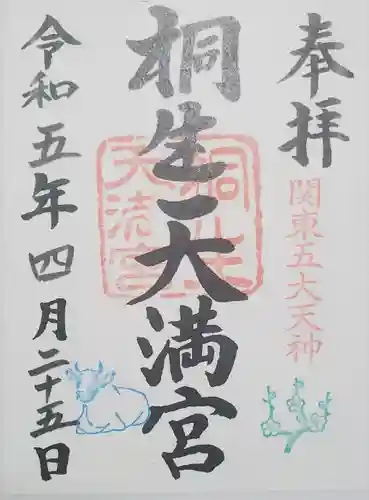 奉拝
関東五大天神
桐生天満宮
桐生天満宮
令和五年四月二十五日